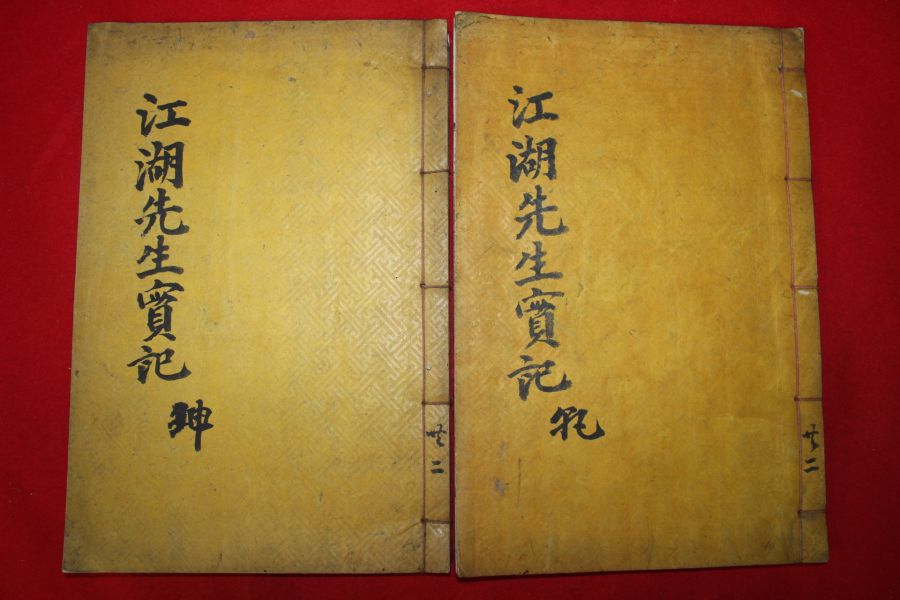 共二
江湖先生實記 乾
共二
江湖先生實記 坤